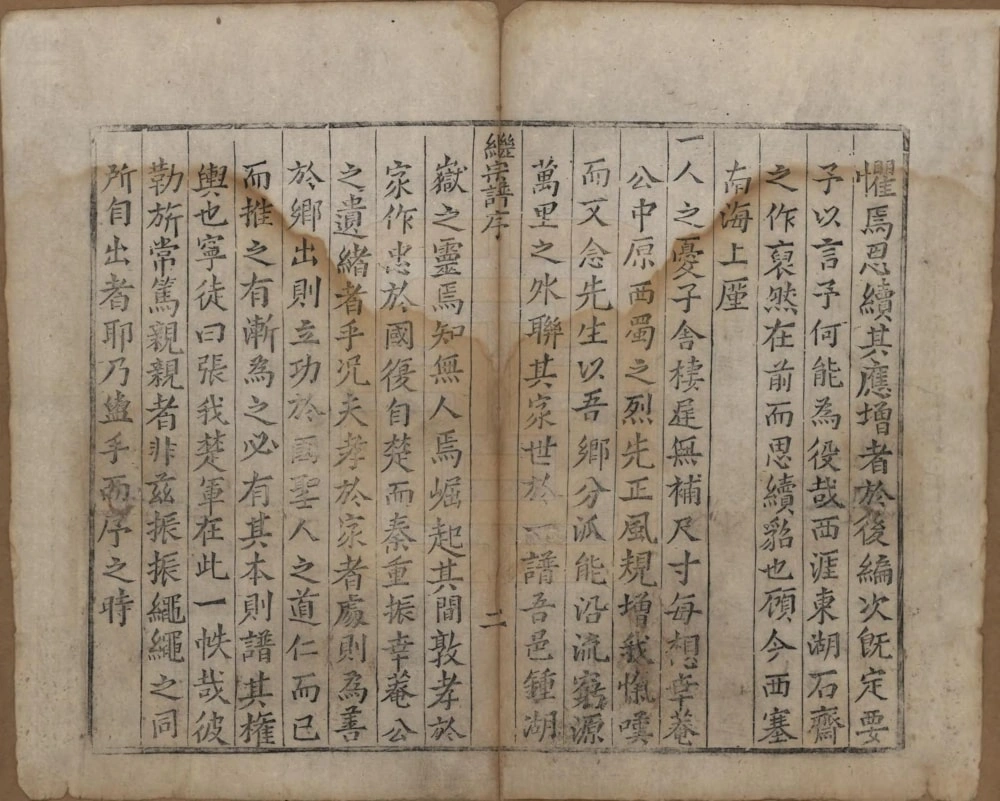 懼焉思續其應增者於後編次旣定要
子以言予何能為役哉西涯東湖石齋
之作裒然在前而思續貂也顧今西塞
南海上厪
一人之憂子舍棲遲無補尺寸每想幸菴
公中原西蜀之烈先正風規增我慨嘆
而又念先生以吾鄉分派能沿流窮源
萬里之外聯其家世於一譜吾邑鍾湖
繼宗譜序
二
嶽之靈焉知無人焉崛起其間敦孝於
家作忠於國復自楚而秦重振幸菴公
之遺緒者乎況夫孝於家者處則為善
於鄉出則立功於國聖人之道仁而已
而推之有漸為之必有其本則譜其權
輿也寧徒曰張我楚軍在此一帙哉彼
勒旂常篤親親者非茲振振繩繩之同
所自出者耶乃盥手而序之時